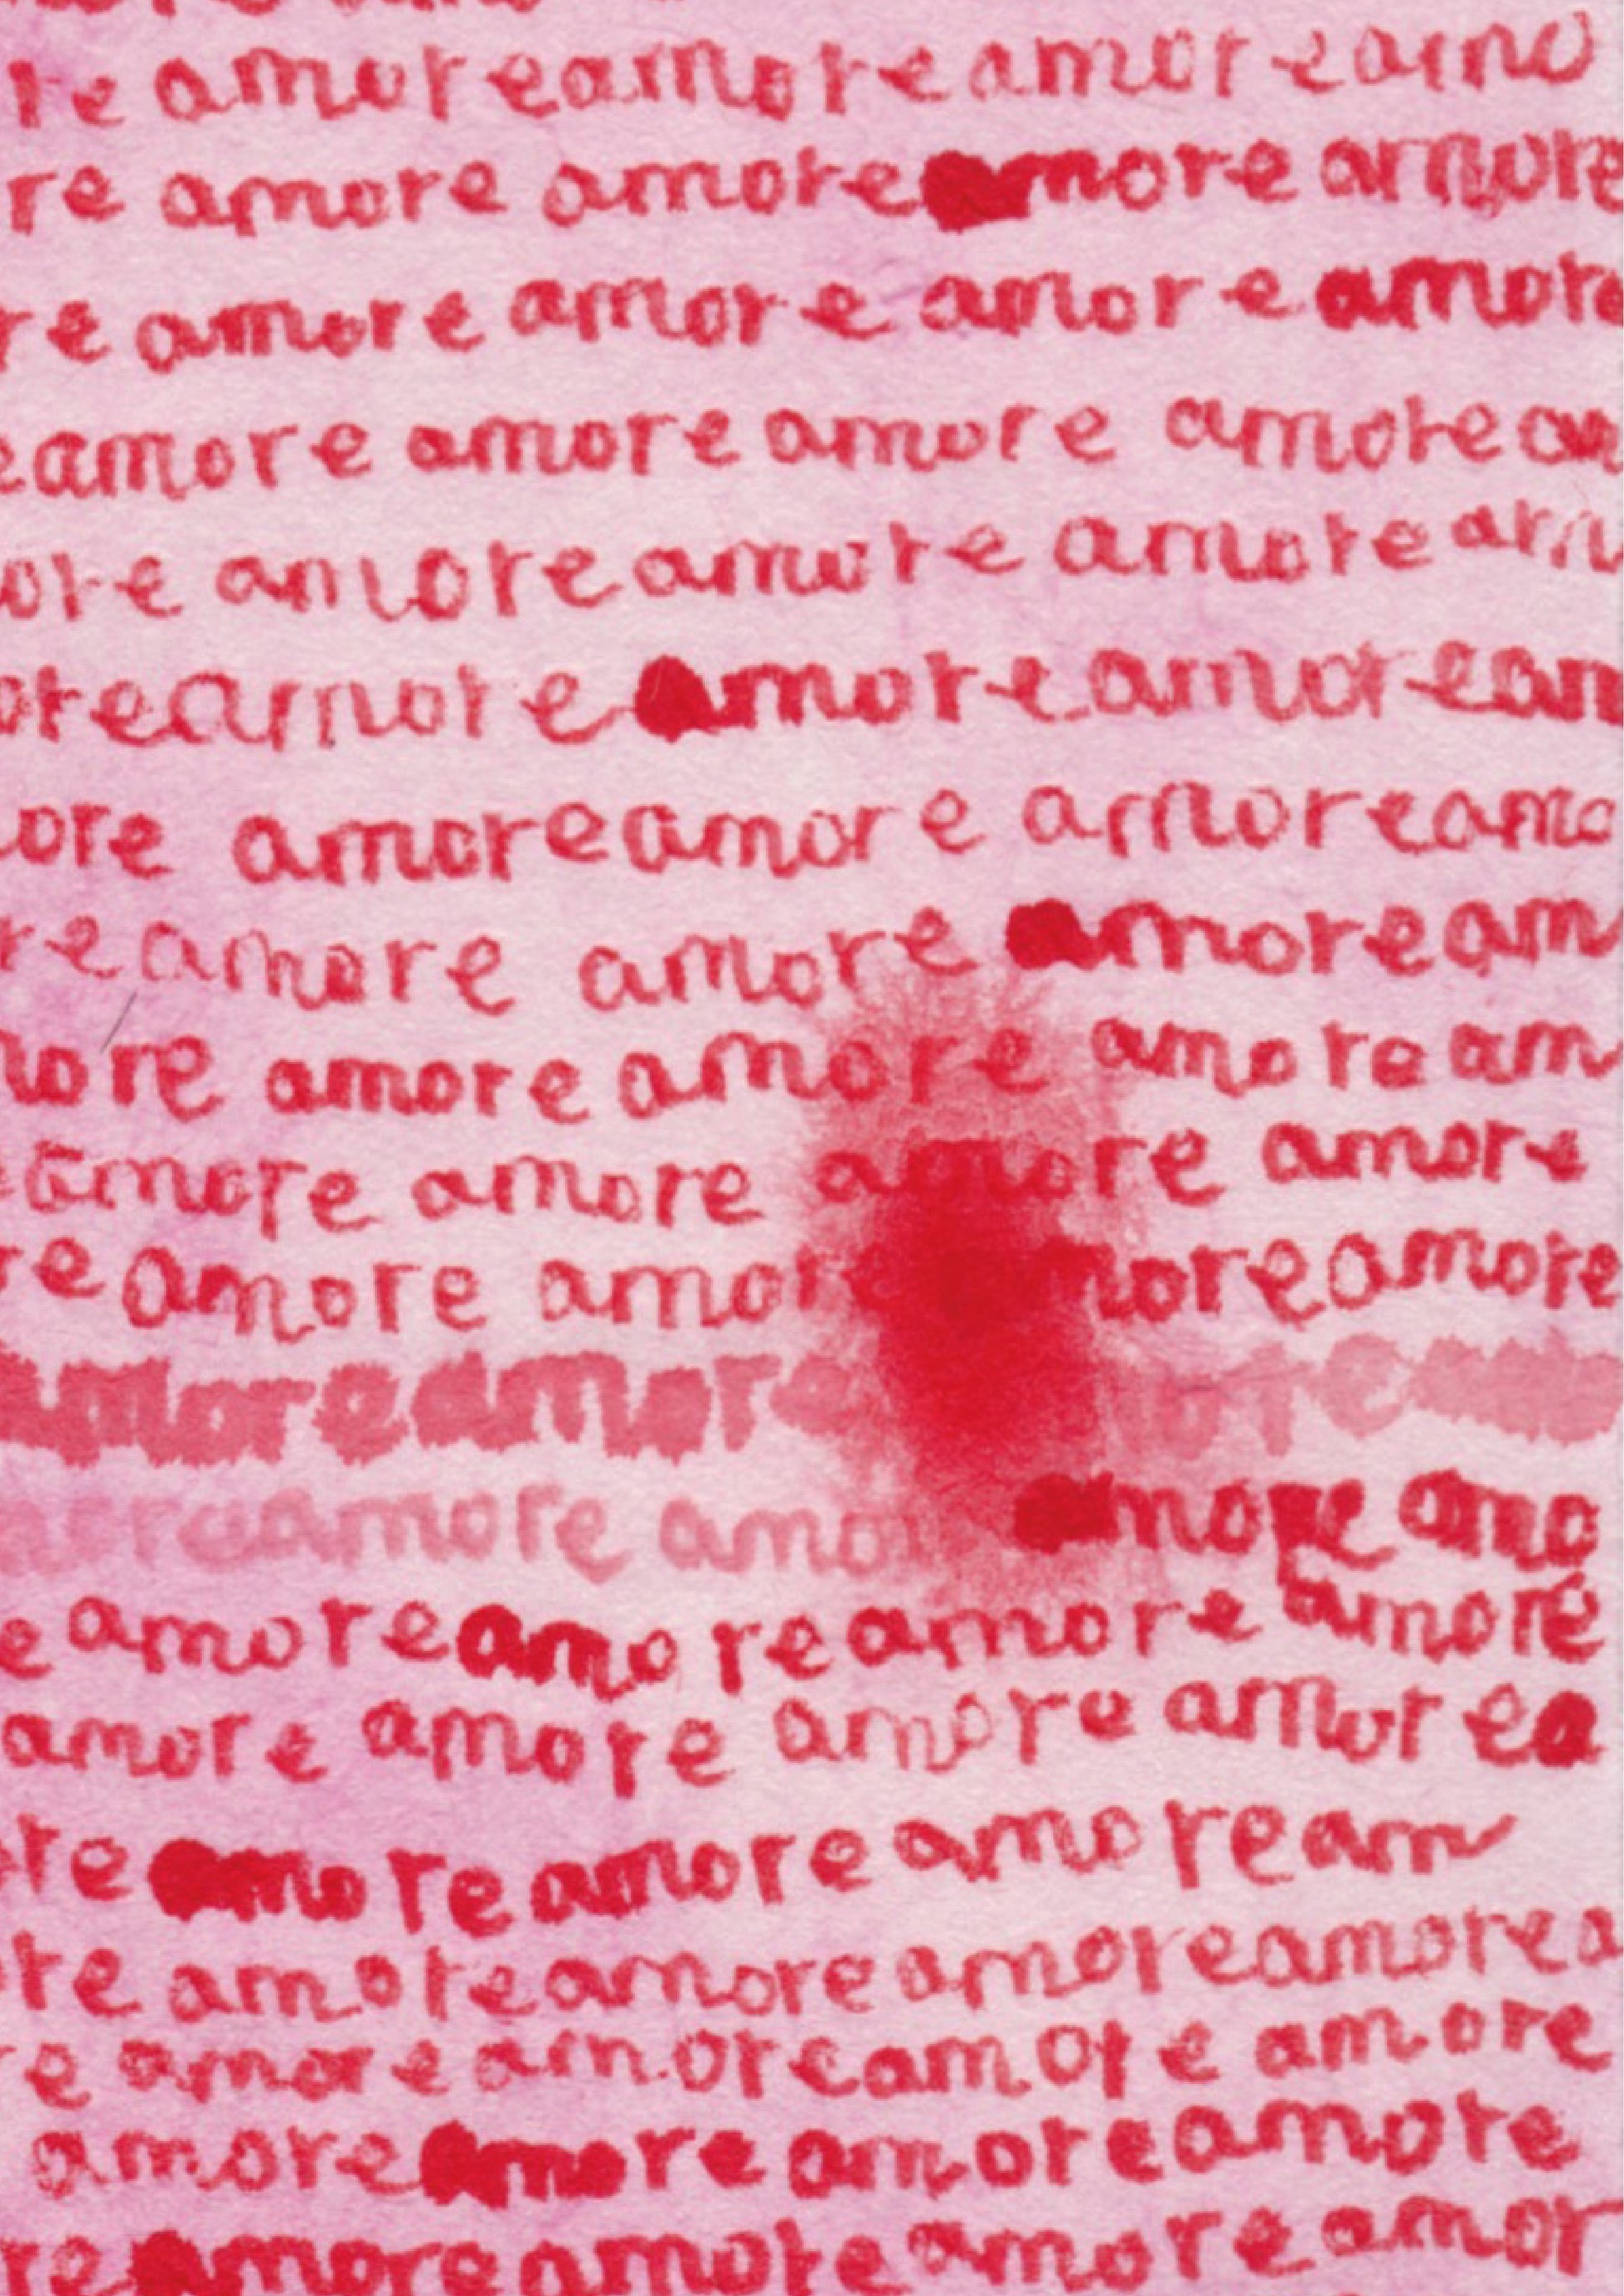 re amoreamoreamoreamo
re amore amoreamore amore
re amore amore amore amore
eamore amoreamore amoream
ore amoreamore amoream
oreamore amoreamoream
ore amoreamore amoreamo
reamore amore amoream
more amoreamore amoream
eamore amore amore amore
re amore amore moreamore
amoreamore ore
oreamore amo amore amo
e amoreamoreamore amore
amore amore amore amorea
ore amoreamoreamoream
re amoreamoreamoreamorea
re amoreamoreamore amore
amoreamore amoreamore
re amoreamoreamoreamor